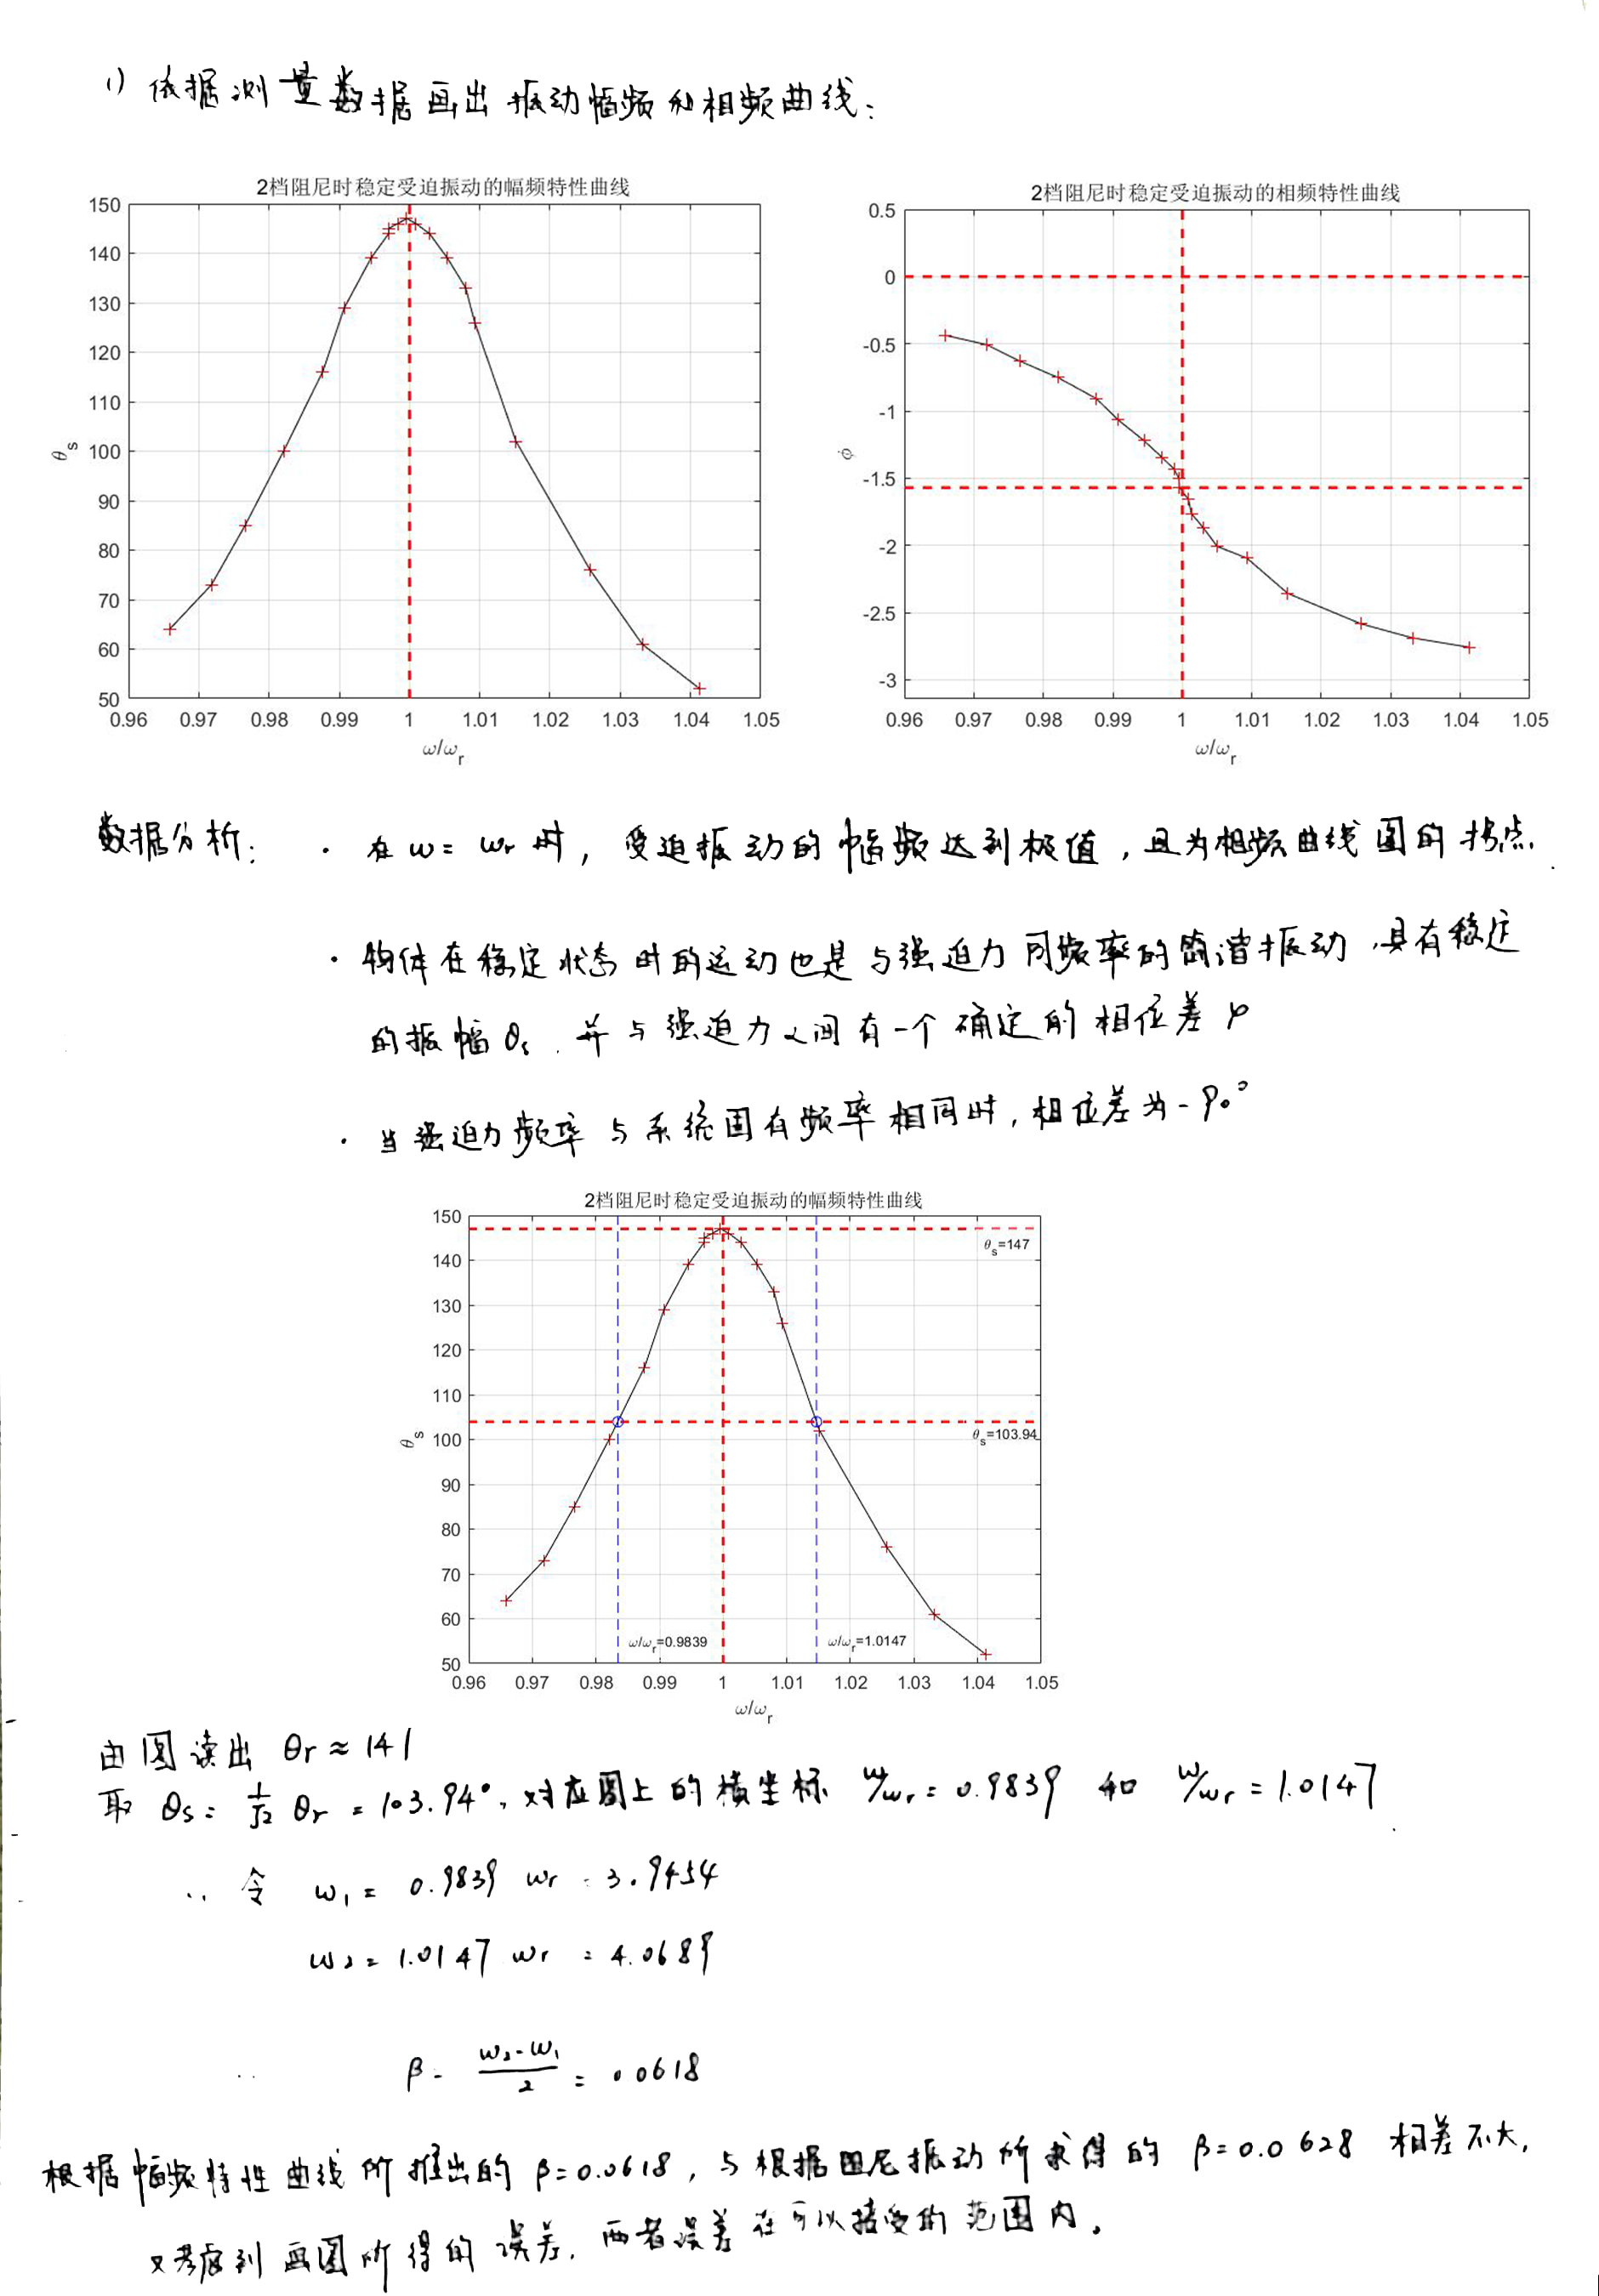 1) 依据测量数据画出振动幅频和相频曲线:
2档阻尼时稳定受迫振动的幅频特性曲线
150
140
130
120
110
100
90
80
70
60
50
θs
0.96 0.97 0.98 0.99 1 1.01 1.02 1.03 1.04 1.05
ω/ωr
2档阻尼时稳定受迫振动的相频特性曲线
0.5
0
-0.5
-1
-1.5
-2
-2.5
-3
ϕ
0.96 0.97 0.98 0.99 1 1.01 1.02 1.03 1.04 1.05
ω/ωr
数据分析: · 在 ω = ωr 时, 受迫振动的幅频达到极值, 且为相频曲线图的拐点.
· 物体在稳定状态时的运动也是与强迫力同频率的简谐振动, 具有稳定
的振幅 θs, 并与强迫力之间有一个确定的相位差 φ
· 当强迫力频率与系统固有频率相同时, 相位差为 -90°
2档阻尼时稳定受迫振动的幅频特性曲线
150
140
130
120
110
100
90
80
70
60
50
θs
θs=147
θs=103.94
ω/ωr=0.9839 ω/ωr=1.0147
0.96 0.97 0.98 0.99 1 1.01 1.02 1.03 1.04 1.05
ω/ωr
由图读出 θr ≈ 141
取 θs = 1/√2 θr = 103.94°, 对应图上的横坐标 ω/ωr = 0.9839 和 ω/ωr = 1.0147
∴ 令 ω1 = 0.9839 ωr = 3.9454
ω2 = 1.0147 ωr = 4.0689
∴ β = (ω2-ω1)/2 = 0.0618
根据幅频特性曲线所推出的 β=0.0618, 与根据阻尼振动所求得的 β=0.0628 相差不大,
又考虑到画图所得的误差, 两者误差在可以接受的范围内.